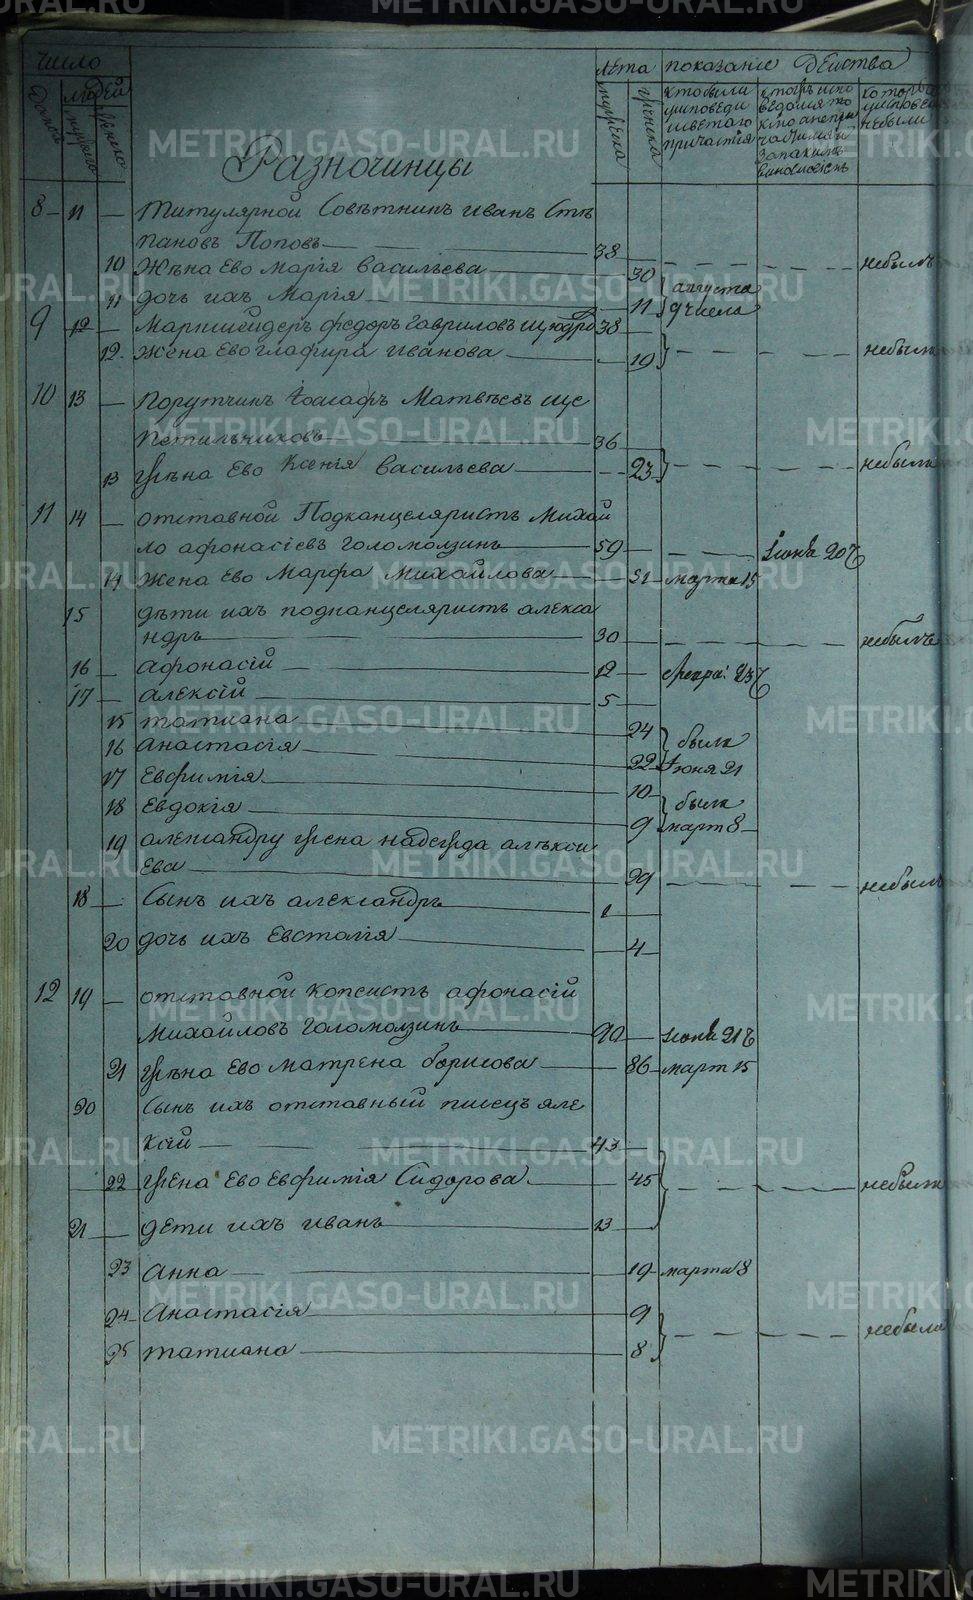 число
домовъ
людей
мужеска
женска
лѣта
мужеска
женска
показание дѣйства
кто были
уисповеди
исвятаго
причастія
которы испо
ведалися то
кмо анепри
частились и
которы
уисповеди
небыли
Разночинцы
8 11 — Титулярной Совѣтникъ иванъ Сте
пановъ Поповъ — 38 — небылъ
10 Жѣна Ево марія васильева — 30 августа
11 дочь ихъ Марія — 11 9 числа
9 12 — Маркшейдеръ федоръ гавриловъ 38
12 Жена Ево глафира иванова — 19 — небыли
10 13 — порутчикъ Іоасафъ Матвѣевъ ще
петильниковъ — 36
13 жѣна Ево Ксенія васильева — 23 — небыли
11 14 — отставной Подканцеляристъ Михай
ло афонасіевъ голомолзинъ — 59 — Іюня 20
14 Жена Ево Марфа Михайлова — 51 марта 15
15 дѣти ихъ подканцеляристъ алекса
ндръ — 30 — небылъ
16 — афонасій — 12 февра: 23
17 — алексій — 5
15 татиана — 24 были
16 анастасія — 22 Іюня 21
17 Евфимія — 10 были
18 Евдокія — 9 март 8
19 александру жена надежда алѣксѣ
Ева — 29 — небыла
18 — Сынъ ихъ александръ — 1
20 дочь ихъ Евсталія — 4
12 19 — отставной копеистъ афонасій
михайловъ голомолзинъ — 90 — Іюня 21
21 жѣна Ево матрена борисова — 86 март 15
20 Сынъ ихъ отставный писецъ але
ксій — 43
22 жена Ево Евфимія Сидорова — 45 — небыли
21 — дети ихъ иванъ — 13
23 анна — 19 марта 8
24 анастасія — 9
25 татиана — 8 — небыли
METRIKI.GASO-URAL.RU